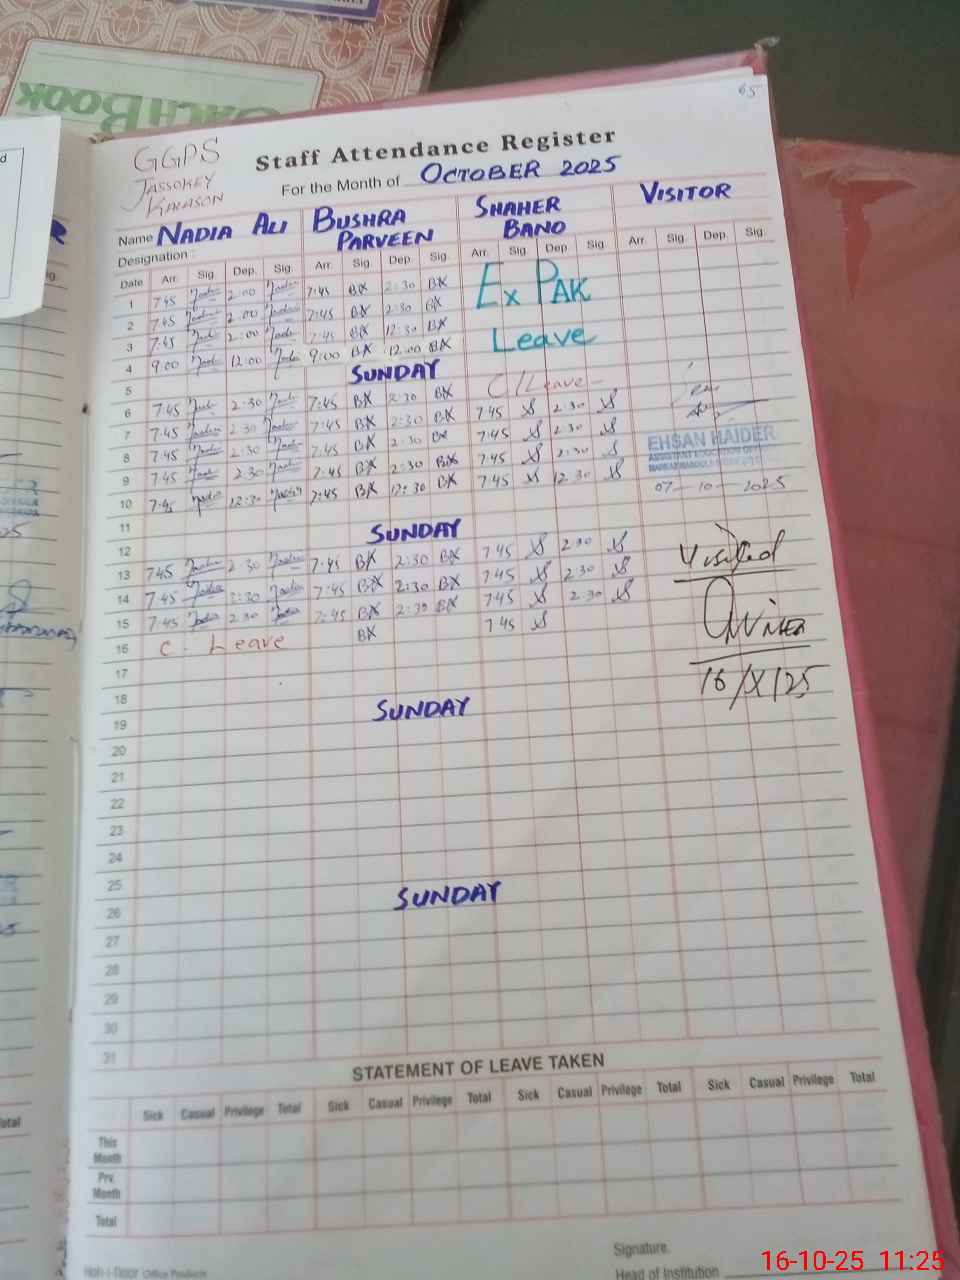 65
GGPS
JASSOKEY
KALASON
Staff Attendance Register
For the Month of OCTOBER 2025
Name NADIA ALI BUSHRA PARVEEN SHAHER BANO VISITOR
Designation
Date Arr. Sig. Dep. Sig. Arr. Sig. Dep. Sig. Arr. Sig. Dep. Sig. Arr. Sig. Dep. Sig.
1 7:45 Nadia 2:00 Nadia 7:45 BK 2:30 BK Ex PAK
2 7:45 Nadia 2:00 Nadia 7:45 BK 2:30 BK
3 7:45 Nadia 2:00 Nadia 7:45 BK 12:30 BK Leave
4 9:00 Nadia 12:00 Nadia 9:00 BK 12:00 BK
5 SUNDAY C/Leave
6 7:45 Nadia 2:30 Nadia 7:45 BK 2:30 BK 7:45 2:30
7 7:45 Nadia 2:30 Nadia 7:45 BK 2:30 BK 7:45 2:30
8 7:45 Nadia 2:30 Nadia 7:45 BK 2:30 BK 7:45 2:30
9 7:45 Nadia 2:30 Nadia 7:45 BK 2:30 BK 7:45 12:30
10 7:45 Nadia 12:30 Nadia 7:45 BK 12:30 BK
EHSAN HAIDER
ASSISTANT EDUCATION
07-10-2025
11
12 SUNDAY 7:45 2:30
13 7:45 Nadia 2:30 Nadia 7:45 BK 2:30 BK 7:45 2:30
14 7:45 Nadia 2:30 Nadia 7:45 BK 2:30 BK 7:45 2:30
15 7:45 Nadia 2:30 Nadia 7:45 BK 2:30 BK 7:45
16 C. Leave BK
Visited
16/X/25
17
18
19 SUNDAY
20
21
22
23
24
25
26 SUNDAY
27
28
29
30
31
STATEMENT OF LEAVE TAKEN
Sick Casual Privilege Total Sick Casual Privilege Total Sick Casual Privilege Total Sick Casual Privilege Total
This Month
Prv. Month
Total
Signature.
Head of Institution
Office Products
16-10-25 11:25